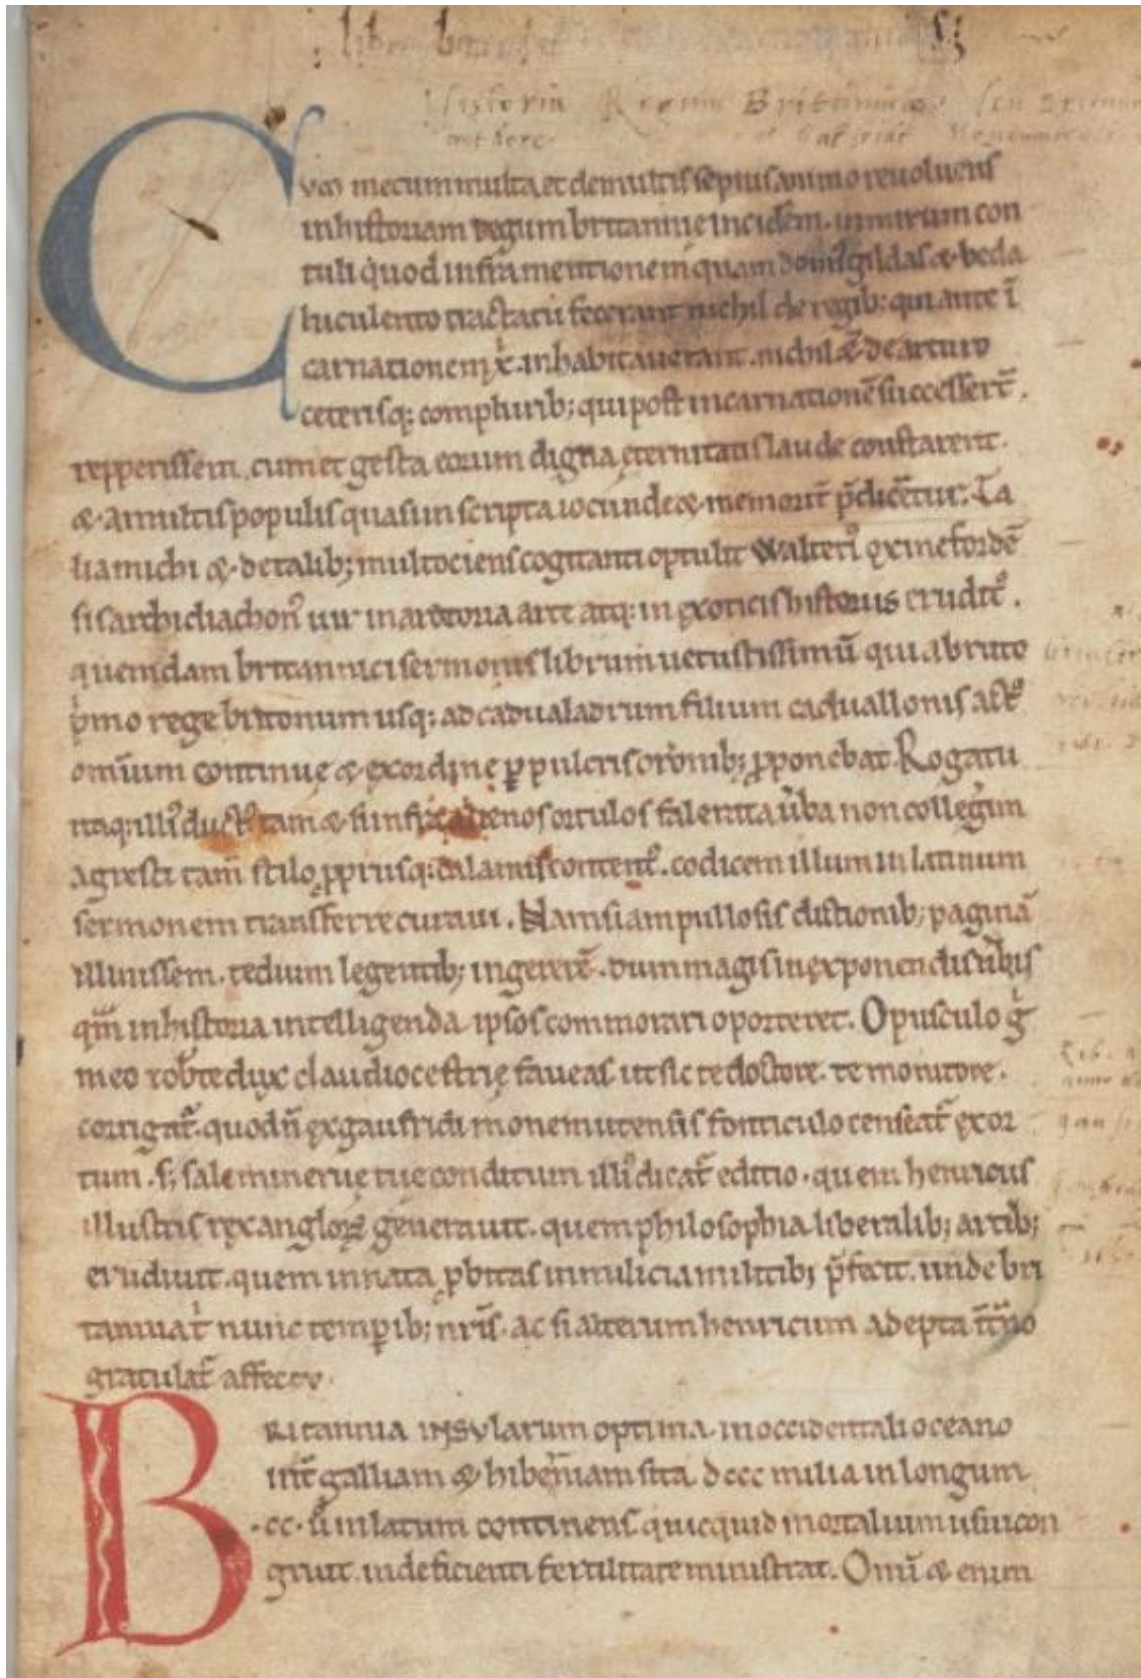 Historia Regum Britanniae seu
Cum mecum multa et de multis sepius animo reuoluens
in historiam regum britannie inciderem. in mirum con
tuli quod infra mentionem quam de eis gildas & beda
luculento tractatu fecerant nichil de regib: qui ante ī
carnationem xͥ. inhabitauerant. nichil &̄ de arturo
ceterisq: compluribꝫ qui post incarnationē successerť.
repperissem. cum et gesta eorum digna ęternitatis laude constarent.
& a multis populis quasi inscripta iocunde & memorit̄ p̄dicent᷑. Ta
lia michi & de talibꝫ multociens cogitanti optulit Walterꝰ ęxinefordē
sis archidiachonꝰ uir in arteoria arte atq: in ęxoticis historiis eruditꝰ.
quemdam britannici sermonis librum uetustissimū qui a bruto
pͥmo rege britonum usq: ad cadualadrum filium caduallonis actꝰ
omīum continuę & ęx ordinę ꝑpulcris orōnibꝫ ꝓponebat. Rogatu
itaq: illiꝰ ductꝰ tam & si infra alienos ortulos falerata ūba non collegͥm
agresti tam̄ stilo ꝓpriisq: calamis contentꝰ. codicem illum in latinum
sermonem transferre curaui. Nam si ampullosis dictionibꝫ paginā
illinissem. tedium legentibꝫ ingererē. dum magis in ęxponendis ūbis
qm̄ in historia intelligenda ipsos commorari oporteret. Opusculo gͥ
meo rob̄te dux claudiocestrię faueas ut sic te doctore. te monitore.
corrigat᷑. quod n̄ ęx gaufridi monemutensis fonticulo censeat᷑ ęxor
tum. sꝫ sale minerue tue conditum illiꝰ dicat᷑ editio. quem henricus
illustris ręx angloꝝ generauit. quem philosophia liberalibꝫ artibꝫ
erudiuit. quem innata ꝓbitas in milicia militibꝫ p̄fecit. unde bri
tannia t nunc temꝑibꝫ nr̄is. ac si alterum henricum adepta īt̄no
gratulat᷑ affectu.
Britannia insularum optima. in occidentali oceano
int̄ galliam & hiberniam sita. dccc milia in longum
.cc. ū in latum continens quicquid mortalium usui con
gruit. indeficienti fertilitate ministrat. Omī & enim